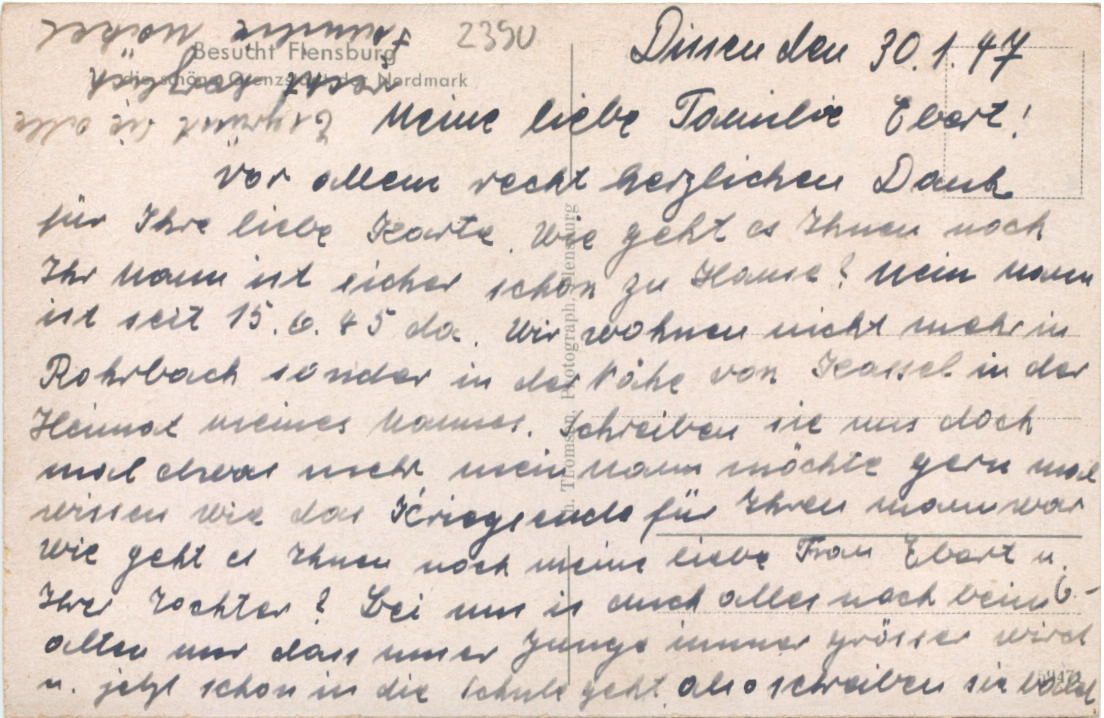 2350
Dissen den 30.1.47
Besucht Flensburg
die schöne Grenzstadt der Nordmark
Meine liebe Familie Ebert!
Vor allem recht herzlichen Dank
für Ihre liebe Karte. Wie geht es Ihnen noch
Ihr Mann ist sicher schon zu Hause? Mein Mann
ist seit 15.6.45 da. Wir wohnen nicht mehr in
Rohrbach sonder in der Nähe von Kassel in der
Heimat meines Mannes. Schreiben sie uns doch
mal etwas mehr, mein Mann möchte gern mal
wissen wie das Kriegsende für Ihren Mann war
Wie geht es Ihnen noch meine liebe Frau Ebert u.
Ihrer Tochter? Bei uns is auch alles noch beim
alten nur dass unser Junge immer grösser wird
u. jetzt schon in die Schule geht. also schreiben sie bald
Es grüsst sie alle
recht herzlich
Thomsen, Photograph, Flensburg